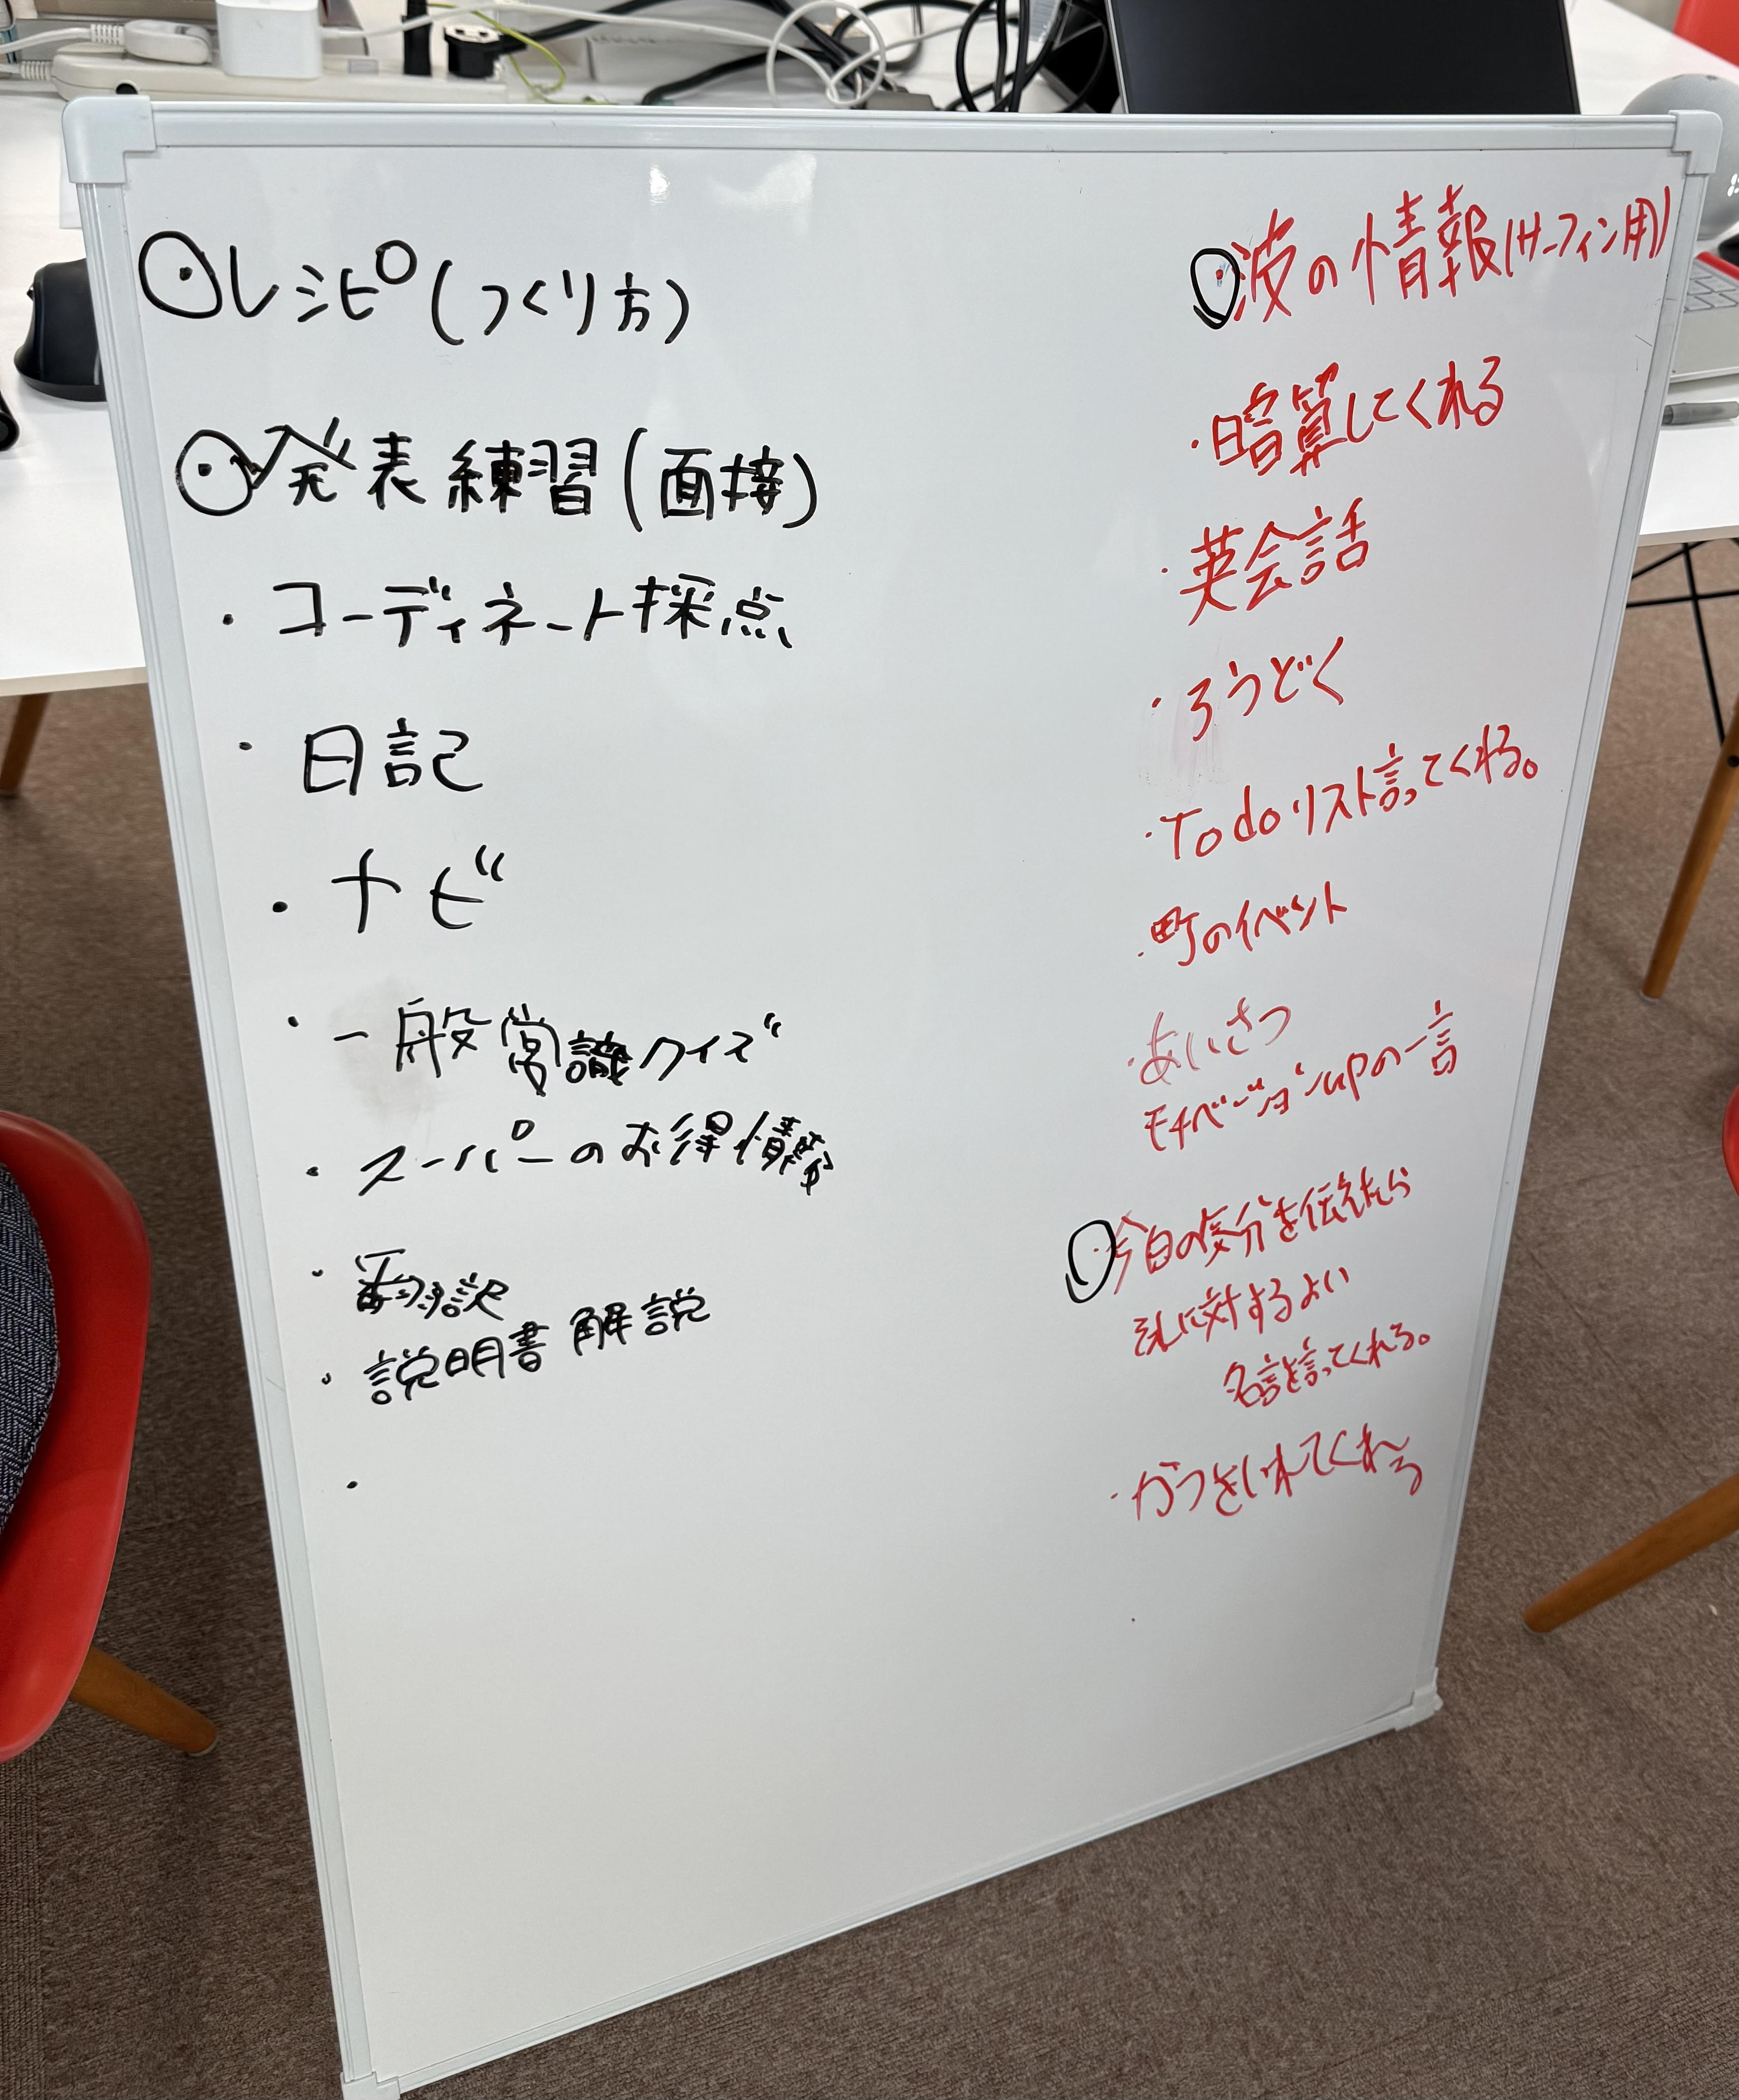 ・レシピ(つくり方)
・発表練習(面接)
・コーディネート採点
・日記
・ナビ
・一般常識クイズ
・スーパーのお得情報
・翻訳
・説明書解説
・
・波の情報(サーフィン用)
・暗算してくれる
・英会話
・ろうどく
・Todoリスト言ってくれる。
・町のイベント
・あいさつ
モチベーションupの一言
・今日の気分を伝えたら
それに対するよい
名言を言ってくれる。
・かつをいれてくれる